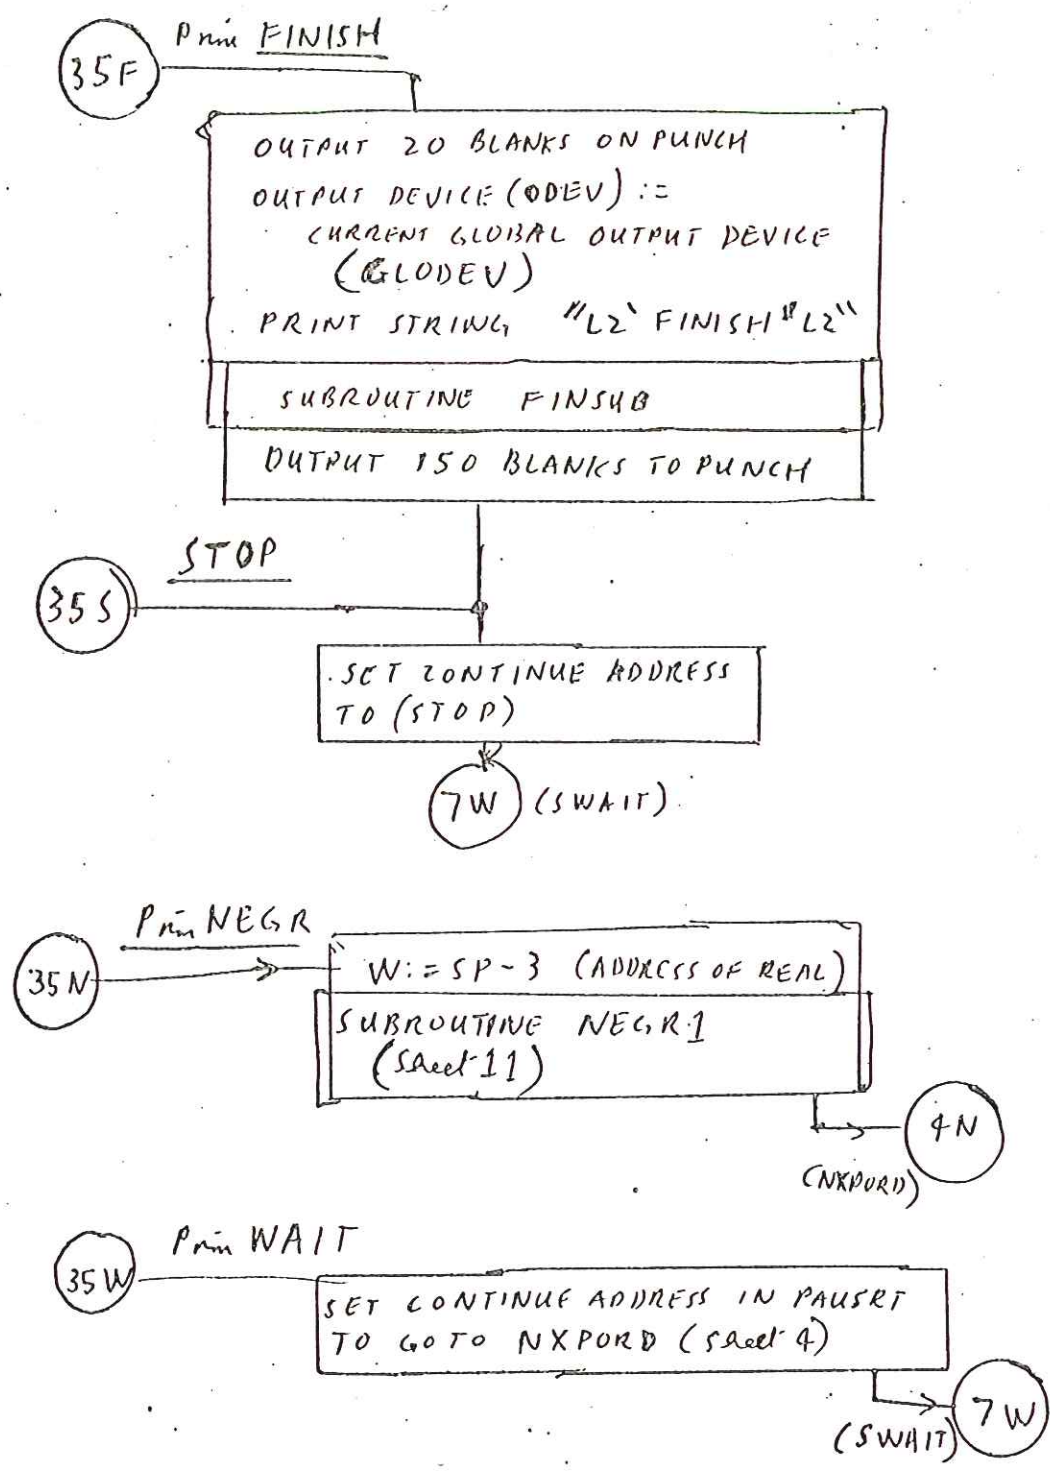 Prim FINISH
35F
OUTPUT 20 BLANKS ON PUNCH
OUTPUT DEVICE (ODEV) :=
CURRENT GLOBAL OUTPUT DEVICE
(GLODEV)
PRINT STRING "L2` FINISH "L2``
SUBROUTINE FINSUB
OUTPUT 150 BLANKS TO PUNCH
STOP
35S
SET CONTINUE ADDRESS
TO (STOP)
7W (SWAIT)
Prim NEGR
35N
W:= SP-3 (ADDRESS OF REAL)
SUBROUTINE NEGR1
(Sheet 11)
4N
(NXPORD)
Prim WAIT
35W
SET CONTINUE ADDRESS IN PAUSRT
TO GOTO NXPORD (Sheet 4)
7W
(SWAIT)